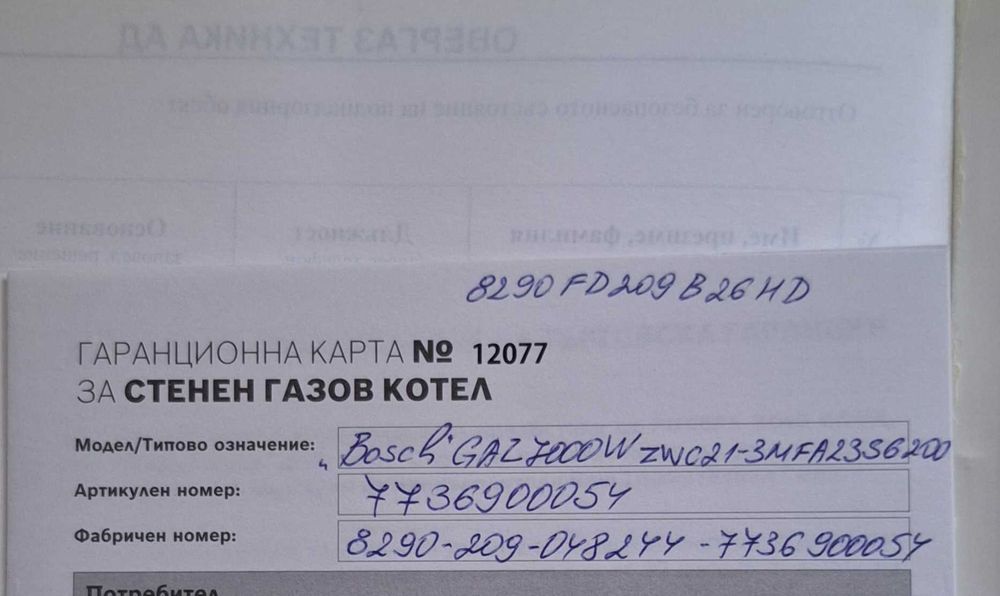 ОВЕРГАЗ ТЕХНИКА АД
Отговорен за безопасното състояние на
Име, презиме, фамилия
Длъжност
Основание
8290FD209B26HD
ГАРАНЦИОННА КАРТА № 12077
ЗА СТЕНЕН ГАЗОВ КОТЕЛ
Модел/Типово означение: "Bosch" GAZ 7000W ZWC21-3MFA23S6200
Артикулен номер: 7736900054
Фабричен номер: 8290-209-048244-7736900054
Потребител